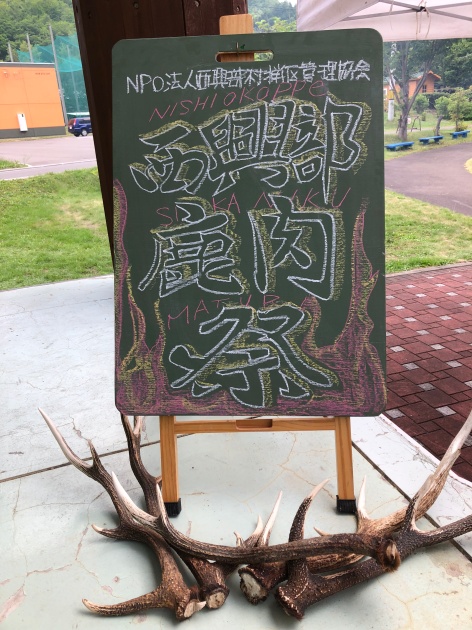 NPO法人西興部村猟区管理協会
NISHIOKOPPE
西興部
SHIKA NIKU
鹿肉
MATSURI
祭